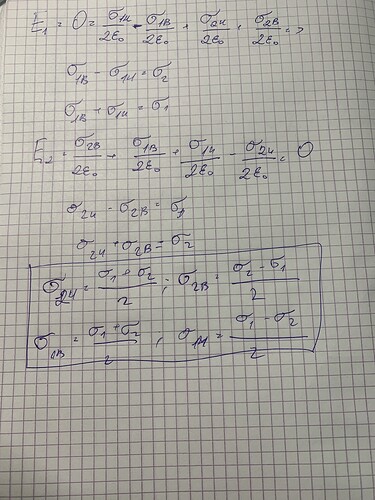 E₁ = 0 = σ₁н/2ε₀ - σ₁В/2ε₀ + σ₂н/2ε₀ + σ₂В/2ε₀ =>
σ₁В - σ₁н = σ₂
σ₁В + σ₁н = σ₁
E₂ = σ₂В/2ε₀ + σ₁В/2ε₀ + σ₁н/2ε₀ - σ₂н/2ε₀ = 0
σ₂н - σ₂В = σ₁
σ₂н + σ₂В = σ₂
σ₂н = (σ₁ + σ₂)/2 ; σ₂В = (σ₂ - σ₁)/2
σ₁В = (σ₁ + σ₂)/2 , σ₁н = (σ₁ - σ₂)/2